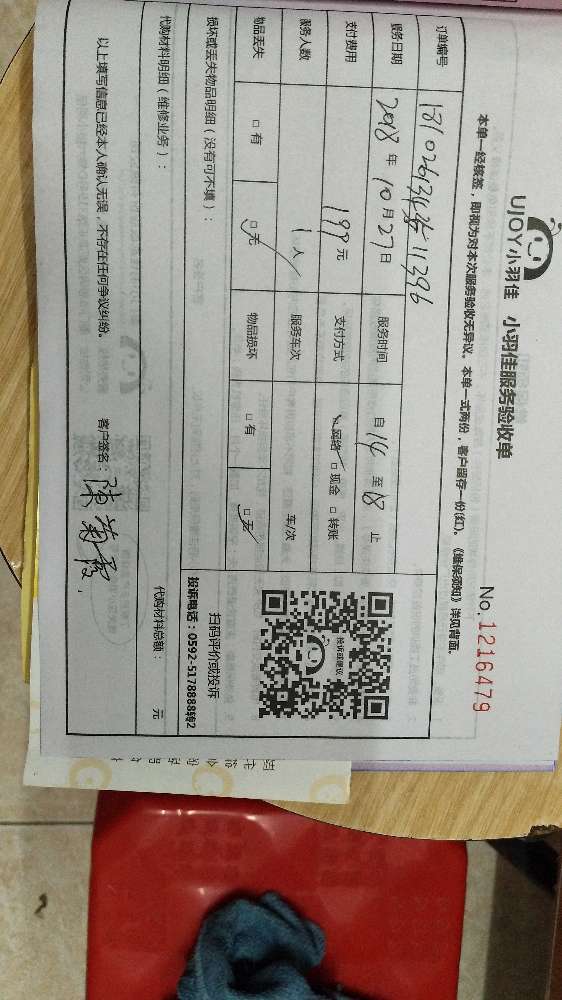 UJOY小羽佳 小羽佳服务验收单
No.1216479
本单一经核签，即视为对本次服务验收无异议。本单一式两份，客户留存一份(红)。《维保须知》详见背面。
订单编号
服务日期 2018 年 10 月 27 日 服务时间 自 14 至 18 止
支付费用 199 元 支付方式 ☑网络 □现金 □转账
服务人数 1 人 服务车次 车/次
物品丢失 □有 ☑无 物品损坏 □有 ☑无
投诉或建议
扫码评价或投诉
投诉电话：0592-5178888转2
损坏或丢失物品明细（没有可不填）：
代购材料明细（维修业务）： 代购材料总额： 元
以上填写信息已经本人确认无误，不存在任何争议纠纷。 客户签名：